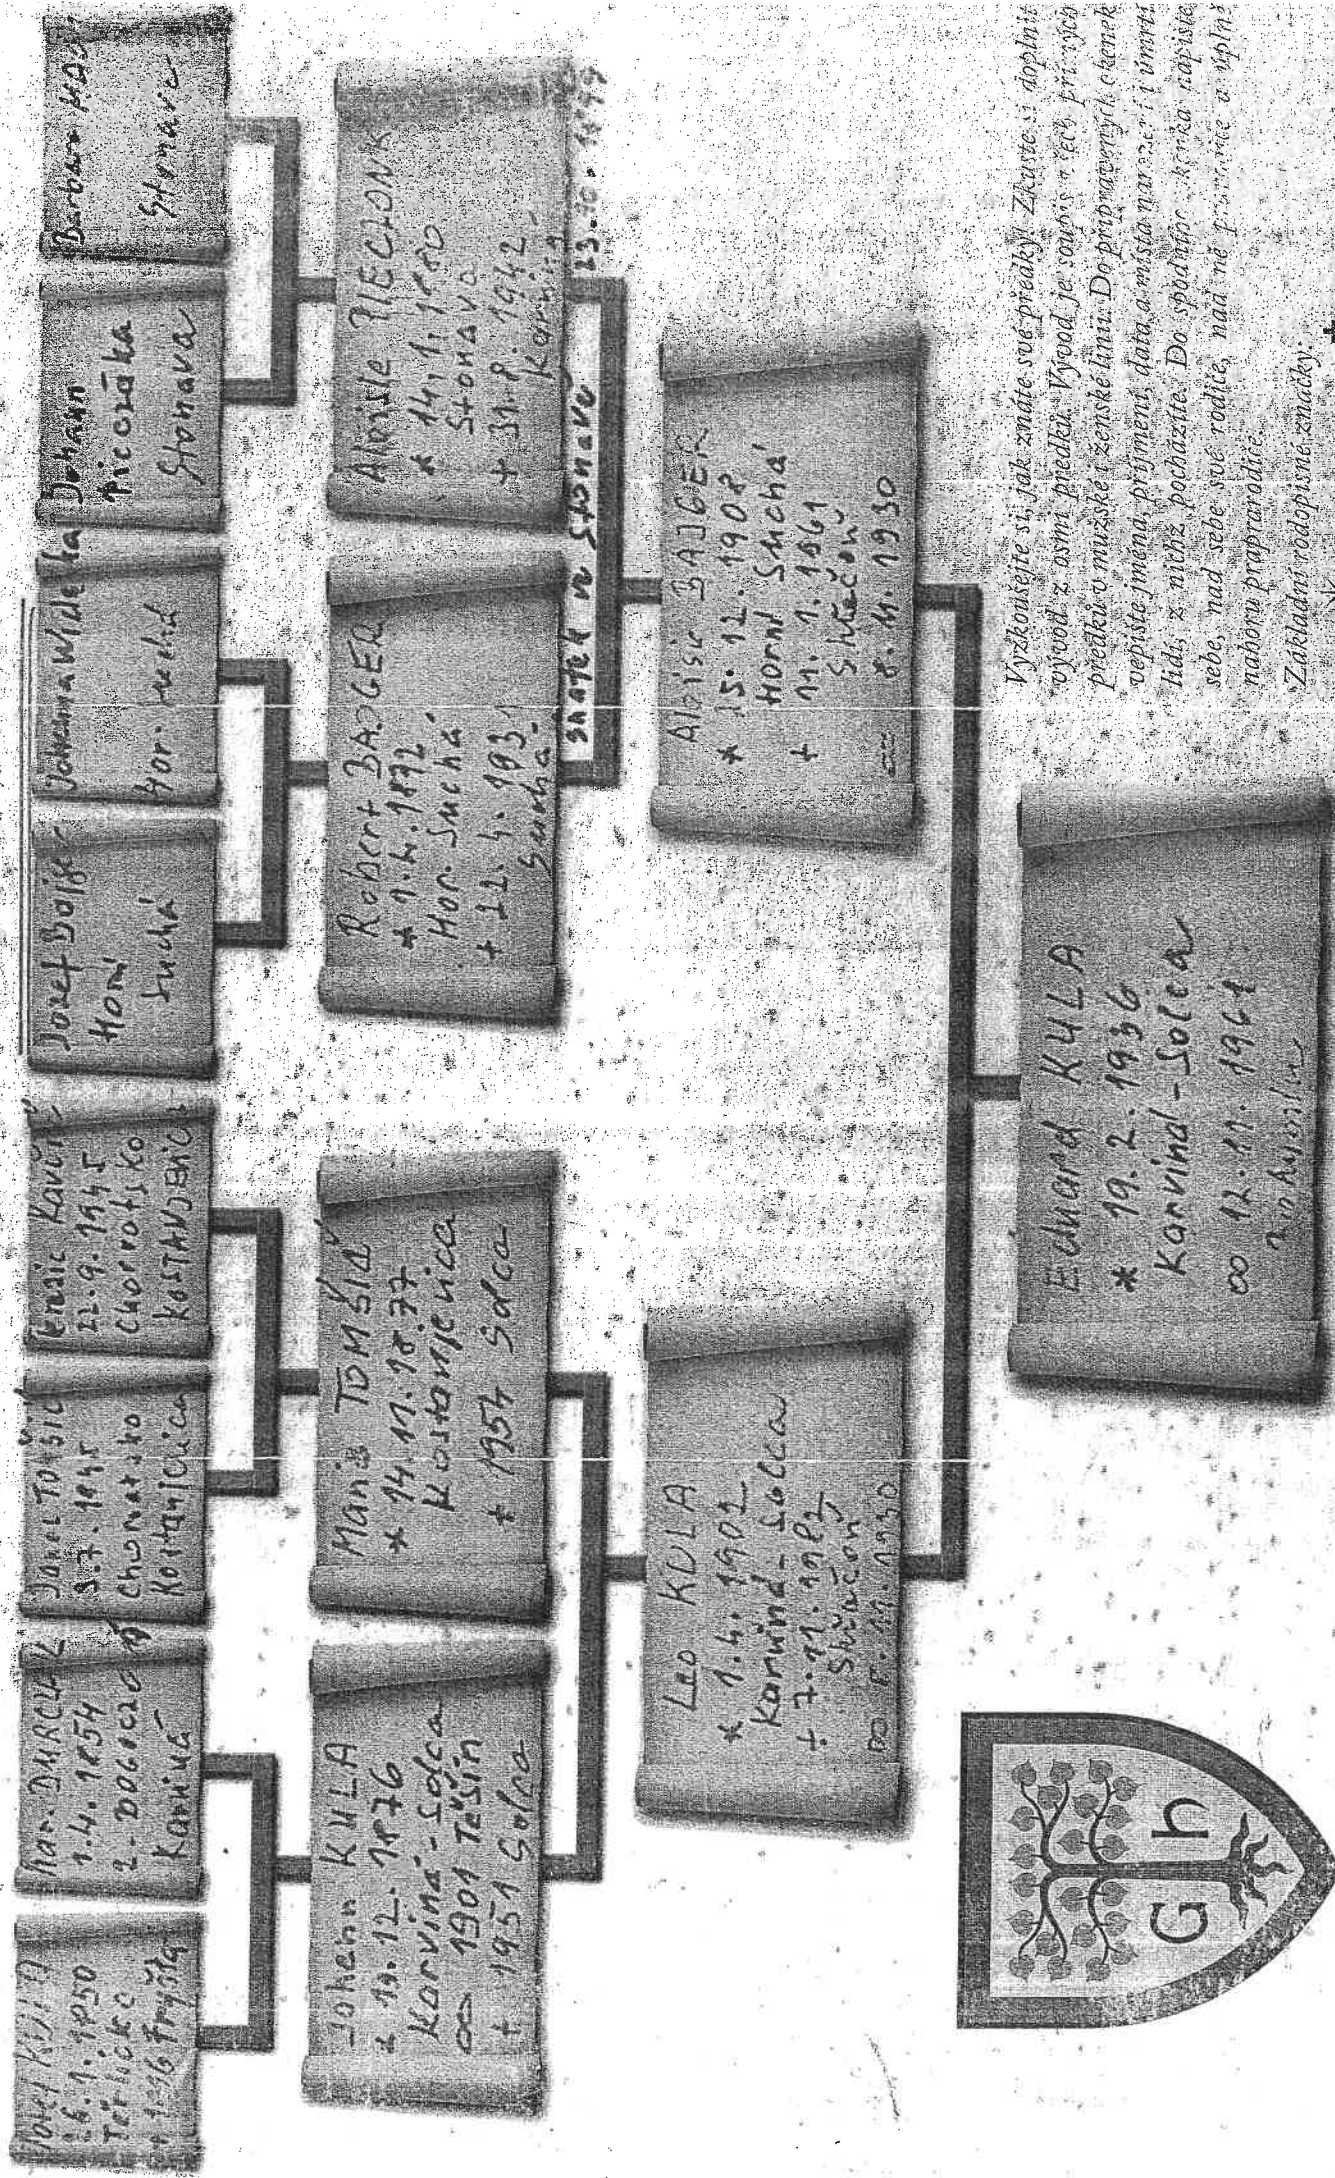 KULA
6.1.1850
Těrlicko
Kar. DURČÁK
1.4.1854
Karviná
Josef TOMŠIĆ
3.7.1845
Chorvatsko
Kostanjevica
22.9.1845
Chorvatsko
KOSTANJEVICA
Josef
Horní
Suchá
Johanna
Hor. Suchá
Johann
Pieczska
Stonava
Barbara
Stonava
Johann KULA
* 19.12.1876
Karviná - Solca
∞ 1901 Těšín
+ 1951 Solca
Marie TOMŠIĆ
* 14.11.1877
Kostanjevica
+ 1954 Solca
Robert BAJGER
* 1.4.1872
Hor. Suchá
+ 22.4.1931
Suchá
Aloisie PIECZONK
* 14.1.1880
Stonava
+ 31.8.1942
Karviná
sňatek v Stonavě 23.10.1899
Leo KULA
* 1.4.1902
Karviná - Solca
+ 7.11.1982
Střačoň
∞ 8.11.1930
Aloisie BAJGER
* 15.12.1908
Horní Suchá
+ 11.1.1961
Stračoň
∞ 8.11.1930
Eduard KULA
* 19.2.1936
Karviná - Solca
∞ 12.11.1961
G h
Vyzkoušejte si, jak znáte své předky! Zkuste si doplnit
vývod z osmi předků. Vývod je soupis všech přímých
předků v mužské i ženské linii. Do připravených okének
vepište jména, příjmení, data a místa narození i úmrtí
lidí, z nichž pocházíte. Do spodního okénka napište
sebe, nad sebe své rodiče, nad ně prarodiče a úplně
nahoru praprarodiče.
Základní rodopisné značky: